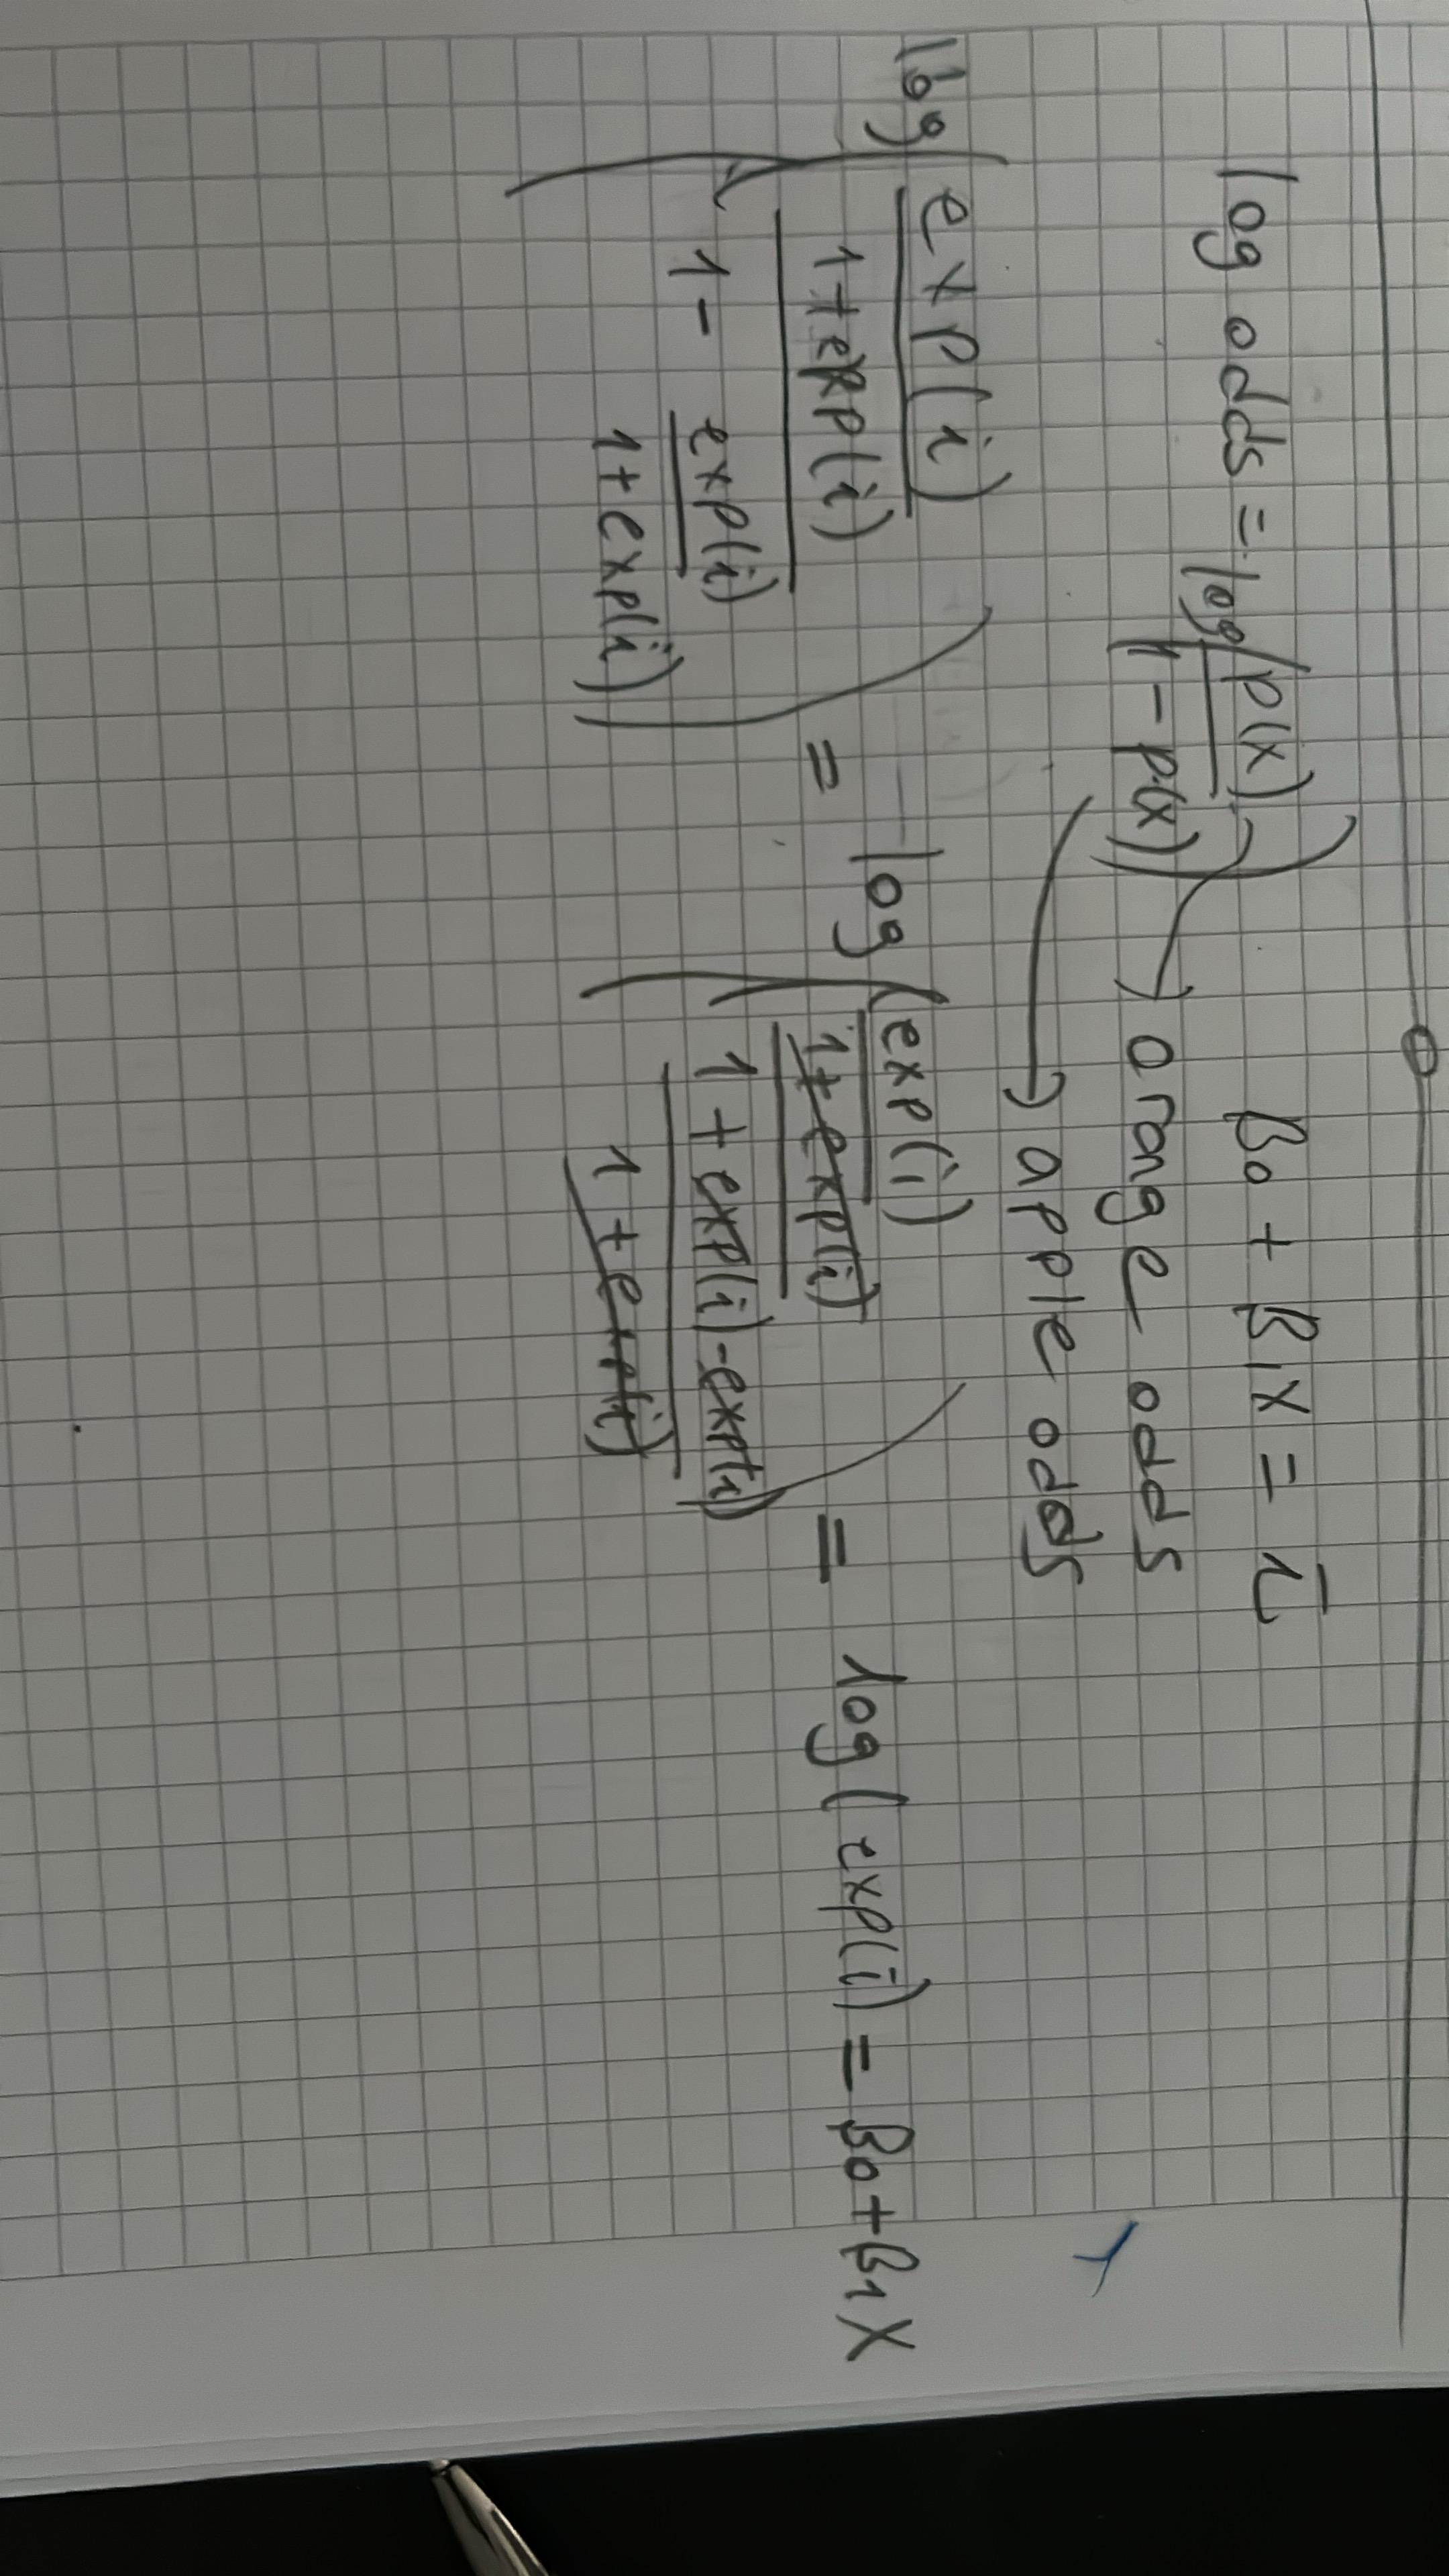 log odds = log(p(x) / 1 - p(x))
β0 + β1X = i
orange odds
apple odds
log(exp(i) / 1+exp(i) / 1 - exp(i) / 1+exp(i)) = log(exp(i) / 1+exp(i) / 1 + exp(i) - exp(i) / 1 + exp(i)) = log(exp(i) = β0+β1X